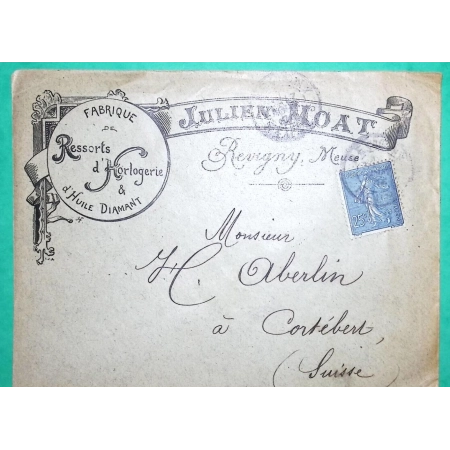 FABRIQUE
DE
Ressorts
d'Horlogerie
&
d'HUILE DIAMANT
JULIEN MOAT
Revigny, Meuse
25
Monsieur
H. C. Aberlin
à Cortébert,
(Suisse